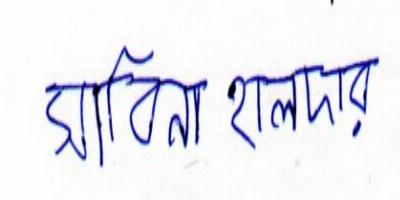 সাবিনা হালদার